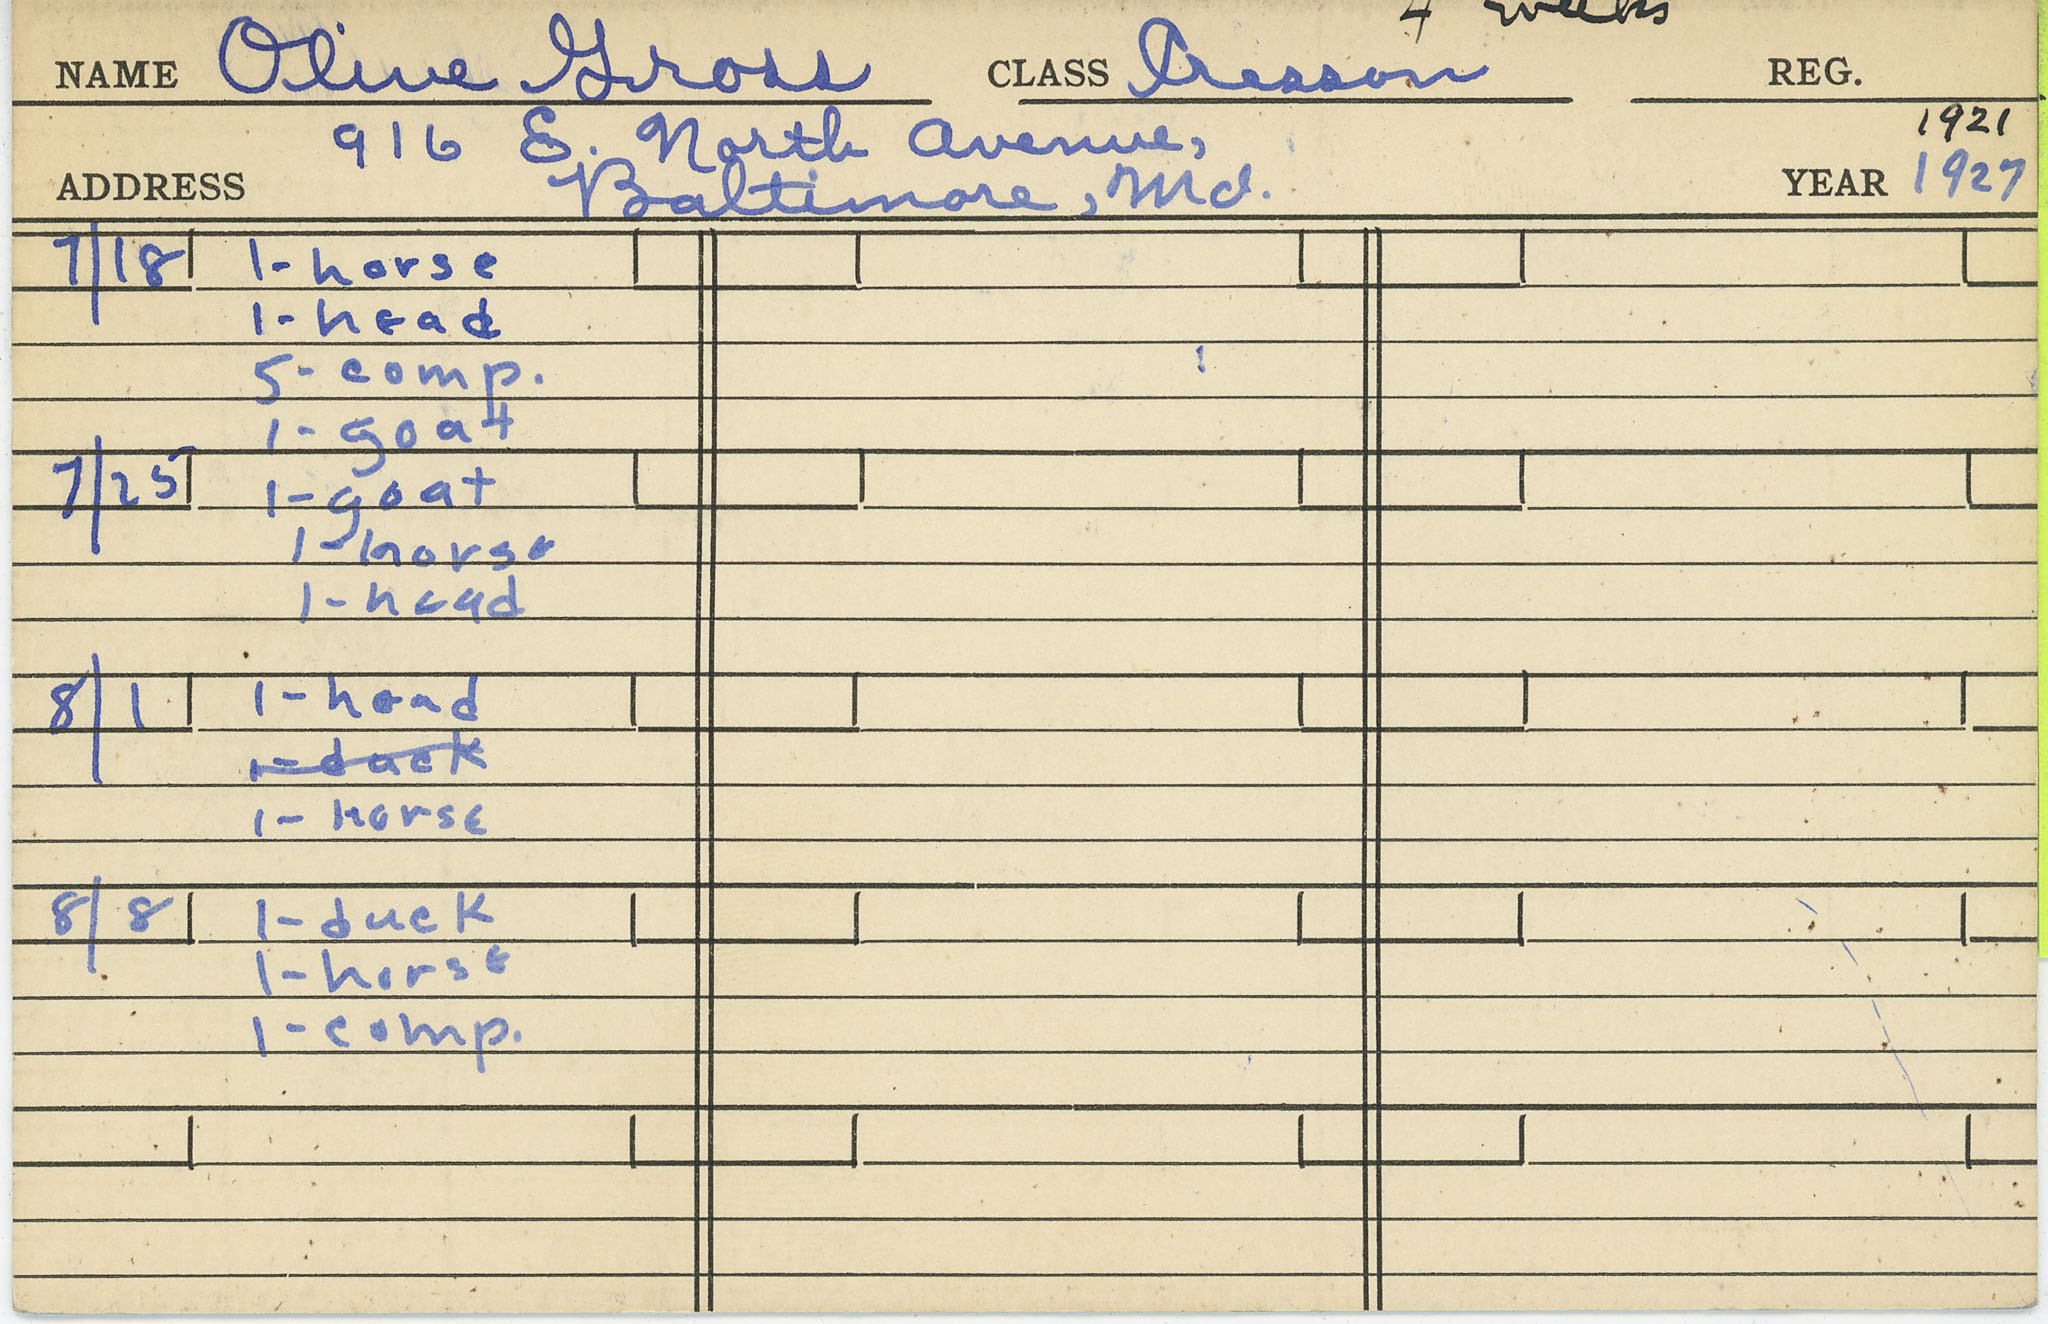 4 weeks
NAME Olive Gross CLASS Cresson REG.
1921
916 E. North Avenue,
ADDRESS Baltimore, Md. YEAR 1927
7/18 1-horse
1-head
5-comp.
1-goat
7/25 1-goat
1-horse
1-head
8/1 1-head
1-duck
1-horse
8/8 1-duck
1-horse
1-comp.